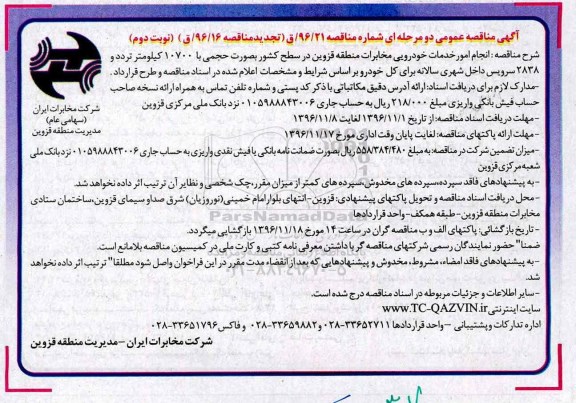 آگهی مناقصه عمومی دو مرحله ای شماره مناقصه ۹۶/۲۱/ق (تجدیدمناقصه ۹۶/۱۶/ق) (نوبت دوم)
شرح مناقصه: انجام امورخدمات خودرویی مخابرات منطقه قزوین در سطح کشور بصورت حجمی با ۱۰۷۰۰ کیلومتر تردد و
۲۸۳۸ سرویس داخل شهری سالانه برای کل خودرو بر اساس شرایط و مشخصات اعلام شده در اسناد مناقصه و طرح قرارداد.
-مدارک لازم برای دریافت اسناد: ارائه آدرس دقیق مکاتباتی با ذکر کد پستی و شماره تلفن تماس به همراه ارائه نسخه صاحب
حساب فیش بانکی واریزی مبلغ ۲۱۸/۰۰۰ ریال به حساب جاری ۰۱۰۵۹۸۸۸۴۳۰۰۶ نزد بانک ملی مرکزی قزوین
-مهلت دریافت اسناد مناقصه: از تاریخ ۱۳۹۶/۱۱/۱ لغایت ۱۳۹۶/۱۱/۸
-مهلت ارائه پاکتهای مناقصه: لغایت پایان وقت اداری مورخ ۱۳۹۶/۱۱/۱۷
-میزان تضمین شرکت در مناقصه: به مبلغ ۵۵۸/۳۸۴/۴۸۰ ریال بصورت ضمانت نامه بانکی یا فیش نقدی واریزی به حساب جاری ۰۱۰۵۹۸۸۸۴۳۰۰۶ نزد بانک ملی
شعبه مرکزی قزوین
-به پیشنهادهای فاقد سپرده، سپرده های مخدوش، سپرده های کمتر از میزان مقرر، چک شخصی و نظایر آن ترتیب اثر داده نخواهد شد.
-محل دریافت اسناد مناقصه و تحویل پاکتهای پیشنهادی: قزوین-انتهای بلوار امام خمینی (نوروزیان) شرق صدا و سیمای قزوین، ساختمان ستادی
مخابرات منطقه قزوین-طبقه همکف-واحد قراردادها
-تاریخ بازگشائی: پاکتهای الف و ب مناقصه گران در ساعت ۱۴ مورخ ۱۳۹۶/۱۱/۱۸ بازگشایی میگردد.
ضمنا" حضور نمایندگان رسمی شرکتهای مناقصه گر با داشتن معرفی نامه کتبی و کارت ملی در کمیسیون مناقصه بلامانع است.
-به پیشنهادهای فاقد امضاء، مشروط، مخدوش و پیشنهادهایی که بعد از انقضاء مدت مقرر در این فراخوان واصل شود مطلقا" ترتیب اثر داده نخواهد
شد.
-سایر اطلاعات و جزئیات مربوطه در اسناد مناقصه درج شده است.
سایت اینترنتی www.TC-QAZVIN.ir
اداره تدارکات و پشتیبانی -واحد قراردادها ۳۳۶۵۲۷۱۱-۰۲۸ و ۳۳۶۵۹۸۸۲-۰۲۸ و فاکس ۳۳۶۵۱۷۹۶-۰۲۸
شرکت مخابرات ایران -مدیریت منطقه قزوین
شرکت مخابرات ایران
(سهامی عام)
مدیریت منطقه قزوین
ParsNamadData